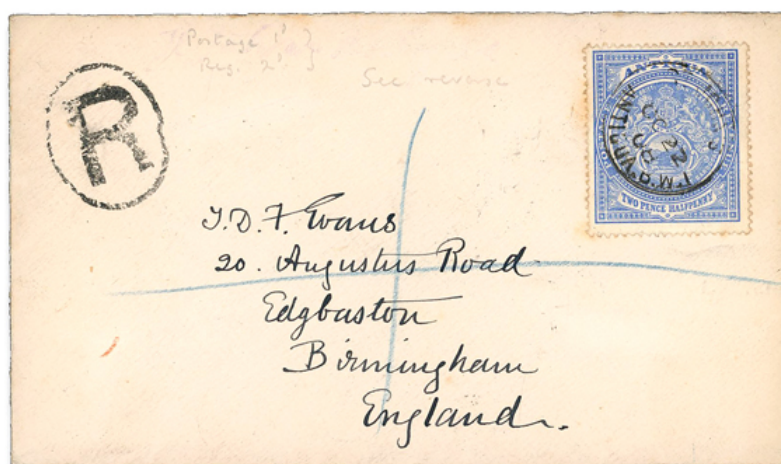 Postage 1ᵈ }
Reg. 2ᵈ }
See reverse
R
ANTIGUA
OC 22
TWO PENCE HALFPENNY
J.D.F. Evans
20. Augustus Road
Edgbaston
Birmingham
England.